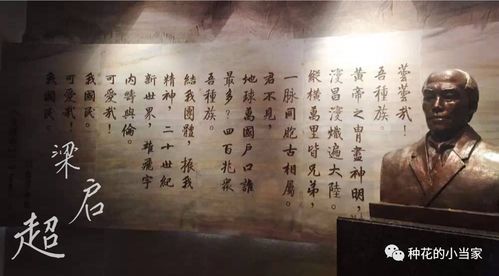 蕓蕓哉!
吾種族。
黃帝之胄盡神明,
寖昌寖熾遍大陸。
縱橫萬里皆兄弟,
一脉同胞古相屬。
君不見,
地球萬國户口誰
最多?四百兆衆
吾種族。
結我團體,振我
精神,二十世紀
新世界,雄飛宇
内疇與倫。
可愛哉!
我國民。
可愛哉!
我國民。
梁启超
种花的小当家